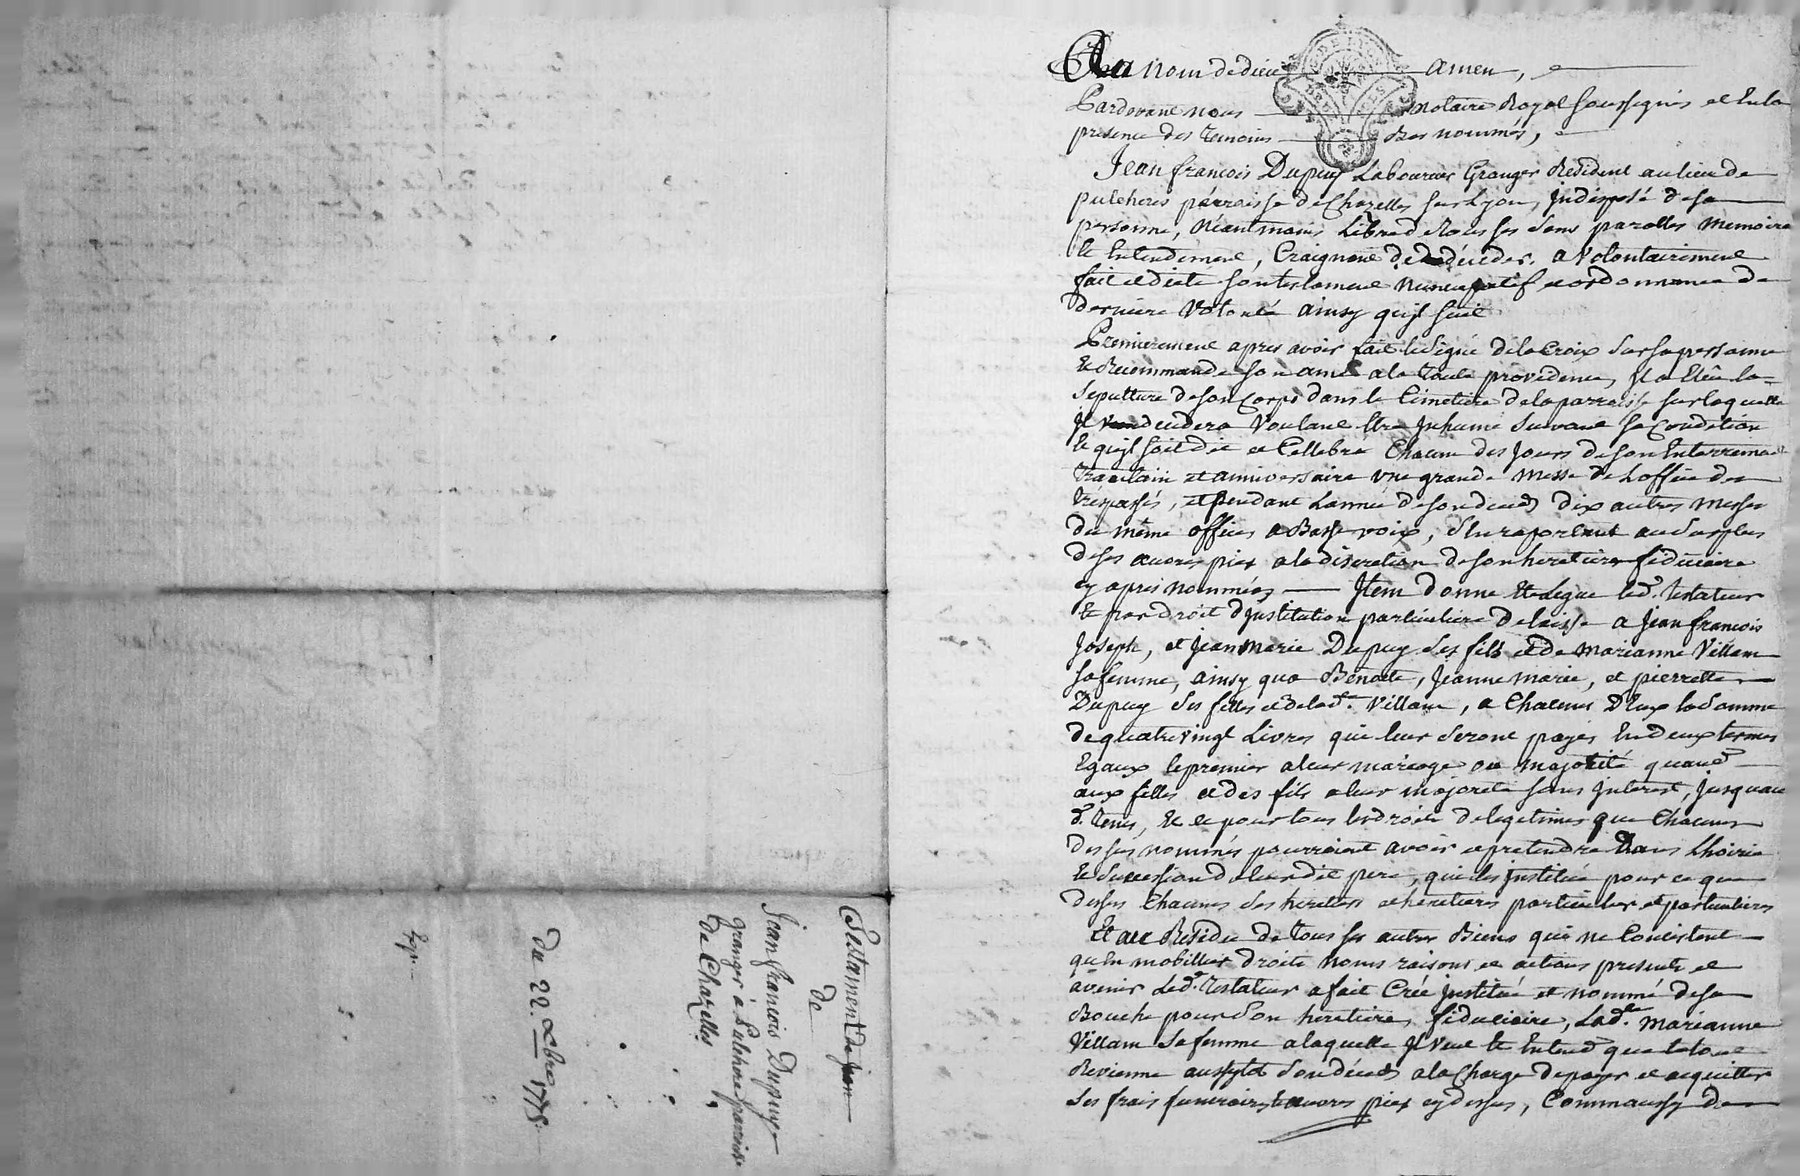 Au Nom de dieu amen,
Pardevant nous notaire Royal soussignés et En la
presence des temoins Bas nommés,
Jean francois Dupuy Laboureur Granger Resident au lieu de
pulehores parroisse de Chazelles sur Lyon, Indisposé de sa
personne, Néantmoins Libre de tous ses sens parolles memoire
Et Entendement, Craignant de décéder. a volontairement
fait et dicté son testament nuncupatif et ordonnance de
derniere volonté ainsy quil suit
Premierement apres avoir fait le signe de la Croix sur sa personne
Et Recommandé son ame a la toute providence, Il a Elêu la
sepulture de son Corps dans le Cimetiere de la parroisse sur laquelle
Il decedera Voulant Etre Inhumé suivant sa Condition
Et quil soit dit et Cellebré Chacun des Jours de son Enterrement
Quarantain et anniversaire une grande Messe de Loffice des
trépassés, et pendant Lannée de son décéd dix autres Messes
du même office a Basse voix, s'en raportant au surplus
de ses œuvres pies a la discretion de son heretiere fiduciaire
cy apres nommées Item donne Et Legue led. testateur
Et par droit d'Institution particuliere delaisse a Jean francois
Joseph, et Jean Marie Dupuy ses fils et de Marianne Villam
sa femme, ainsy qua Benoite, Jeanne Marie, et pierrette
Dupuy ses filles et de lad.e Villam, a Chacuns D'Eux la somme
de quatre vingt Livres qui leur seront payés En deux termes
Egaux le premier a leur mariage ou majorité quand
aux filles et des fils a leur majorité sans Interest, Jusquau
d. tems, Et ce pour tous les droits de legitimes que Chacuns
des sus nommés pourroient avoir et pretendre Dans Lhoirie
Et succession de leur dit pere, qui les Institue pour ce que
dessus Chacuns ses heretiers et heretieres particuliers et particulieres
Et au Residu de tous ses autres Biens qui ne Consistent
qu'En mobillier droits noms raisons et actions presents et
avenir Led. Testateur a fait Créé Institué et nommé de sa
Bouche pour son heretiere, fiduciaire, Lad.e Marianne
Villam sa femme a laquelle Il Veut Et Entend que le tout
Revienne aussytôt son décéd a la Charge de payer et acquitter
ses frais funeraires Et œuvres pies cy dessus, Comm aussy de
Testament de
de
Jean francois Dupuy
granger à Pulehore parroisse
de Chazelles
du 22. Xbre 1775.
Exp.